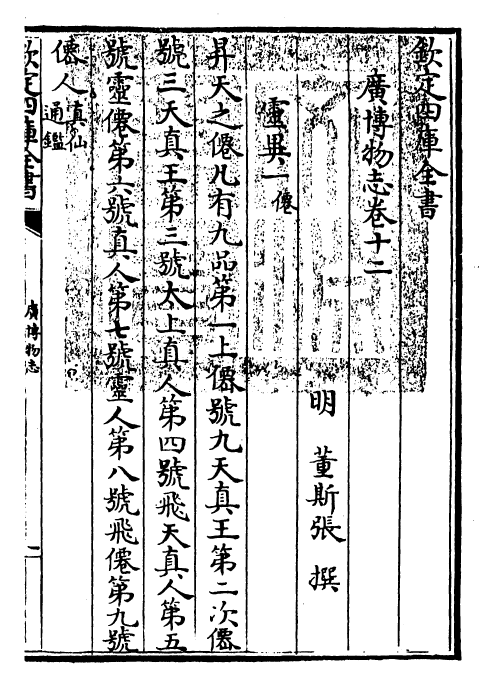 欽定四庫全書
廣博物志卷十二
明　董斯張　撰
靈異一僊
昇天之僊凡有九品第一上僊號九天真王第二次僊
號三天真王第三號太上真人第四號飛天真人第五
號靈僊第六號真人第七號靈人第八號飛僊第九號
僊人真仙通鑑
欽定四庫全書
廣博物志
一